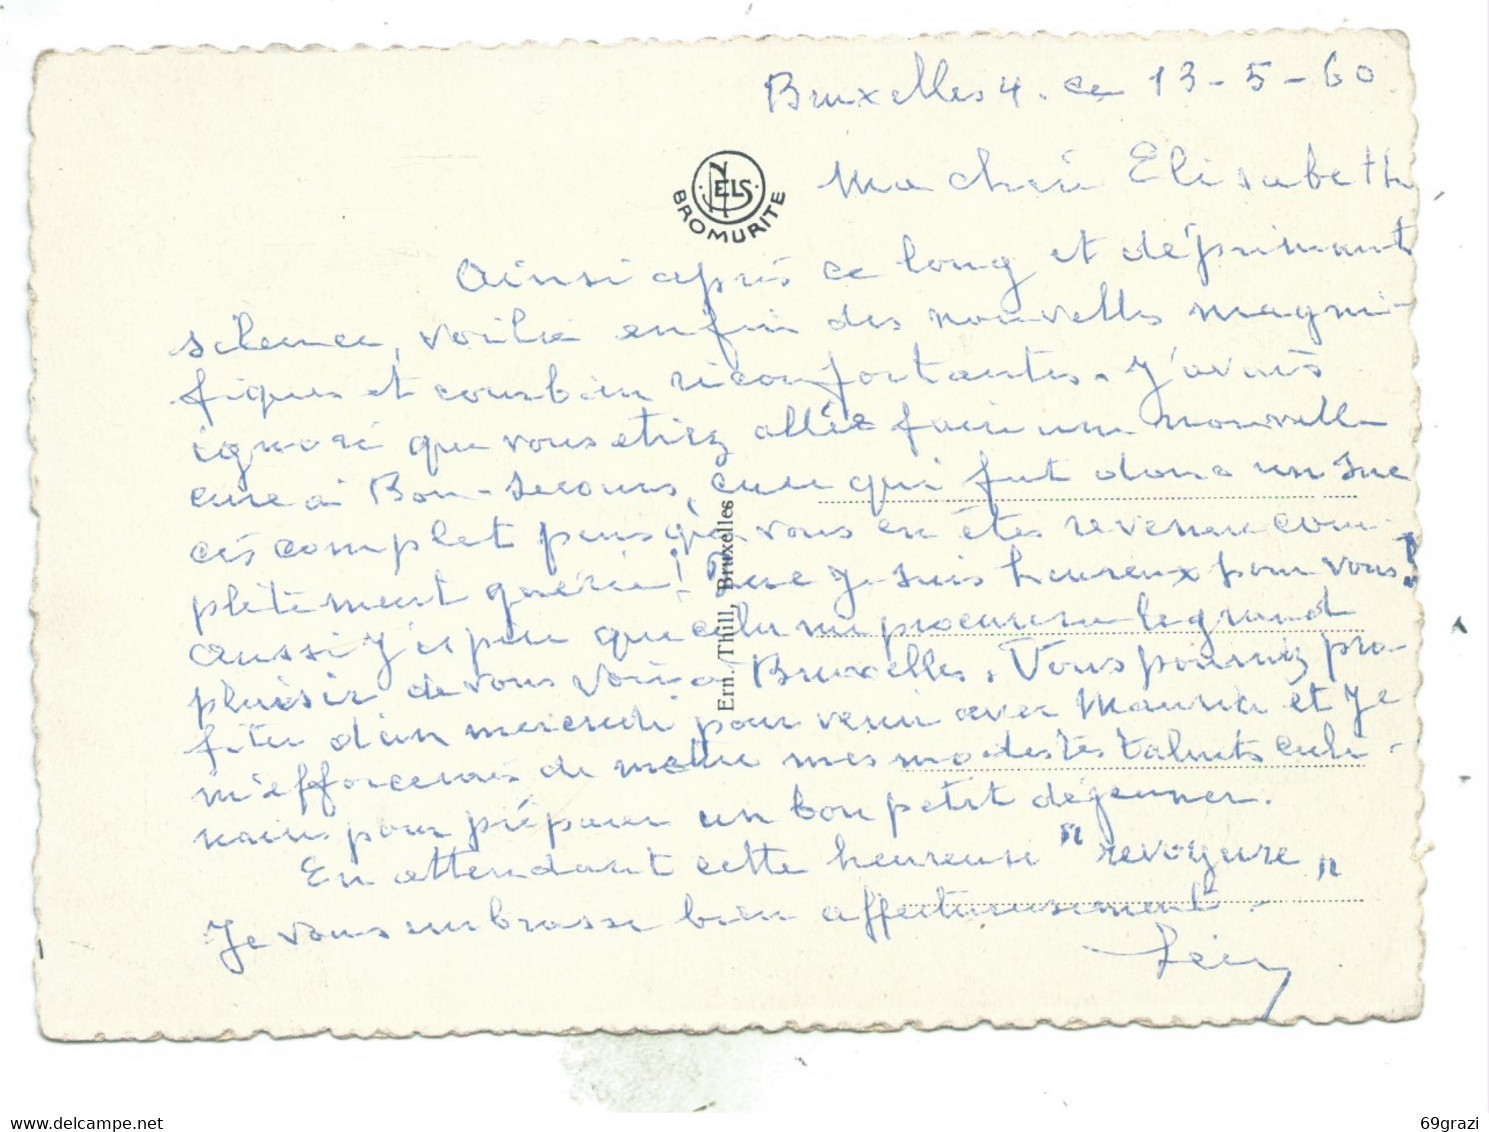 Bruxelles 4. ce 13-5-60
Ma chère Elisabeth
NELS
BROMURITE
Ainsi après ce long et déprimant
silence, voilà enfin des nouvelles magni-
fiques et combien réconfortantes. J'avais
ignoré que vous étiez allée faire une nouvelle
cure à Bon-Secours, cure qui fut donc un suc
cès complet puisque vous en êtes revenue com-
plètement guérie! Que je suis heureux pour vous!
Aussi j'espère que cela me procurera le grand
plaisir de vous voir à Bruxelles. Vous pourriez pro-
fiter d'un mercredi pour venir avec Maurice et je
m'efforcerais de mettre mes modestes talents culi-
naires pour préparer un bon petit déjeuner.
En attendant cette heureuse "revoyure"
Je vous embrasse bien affectueusement.
Ern. Thill, Bruxelles
69grazi